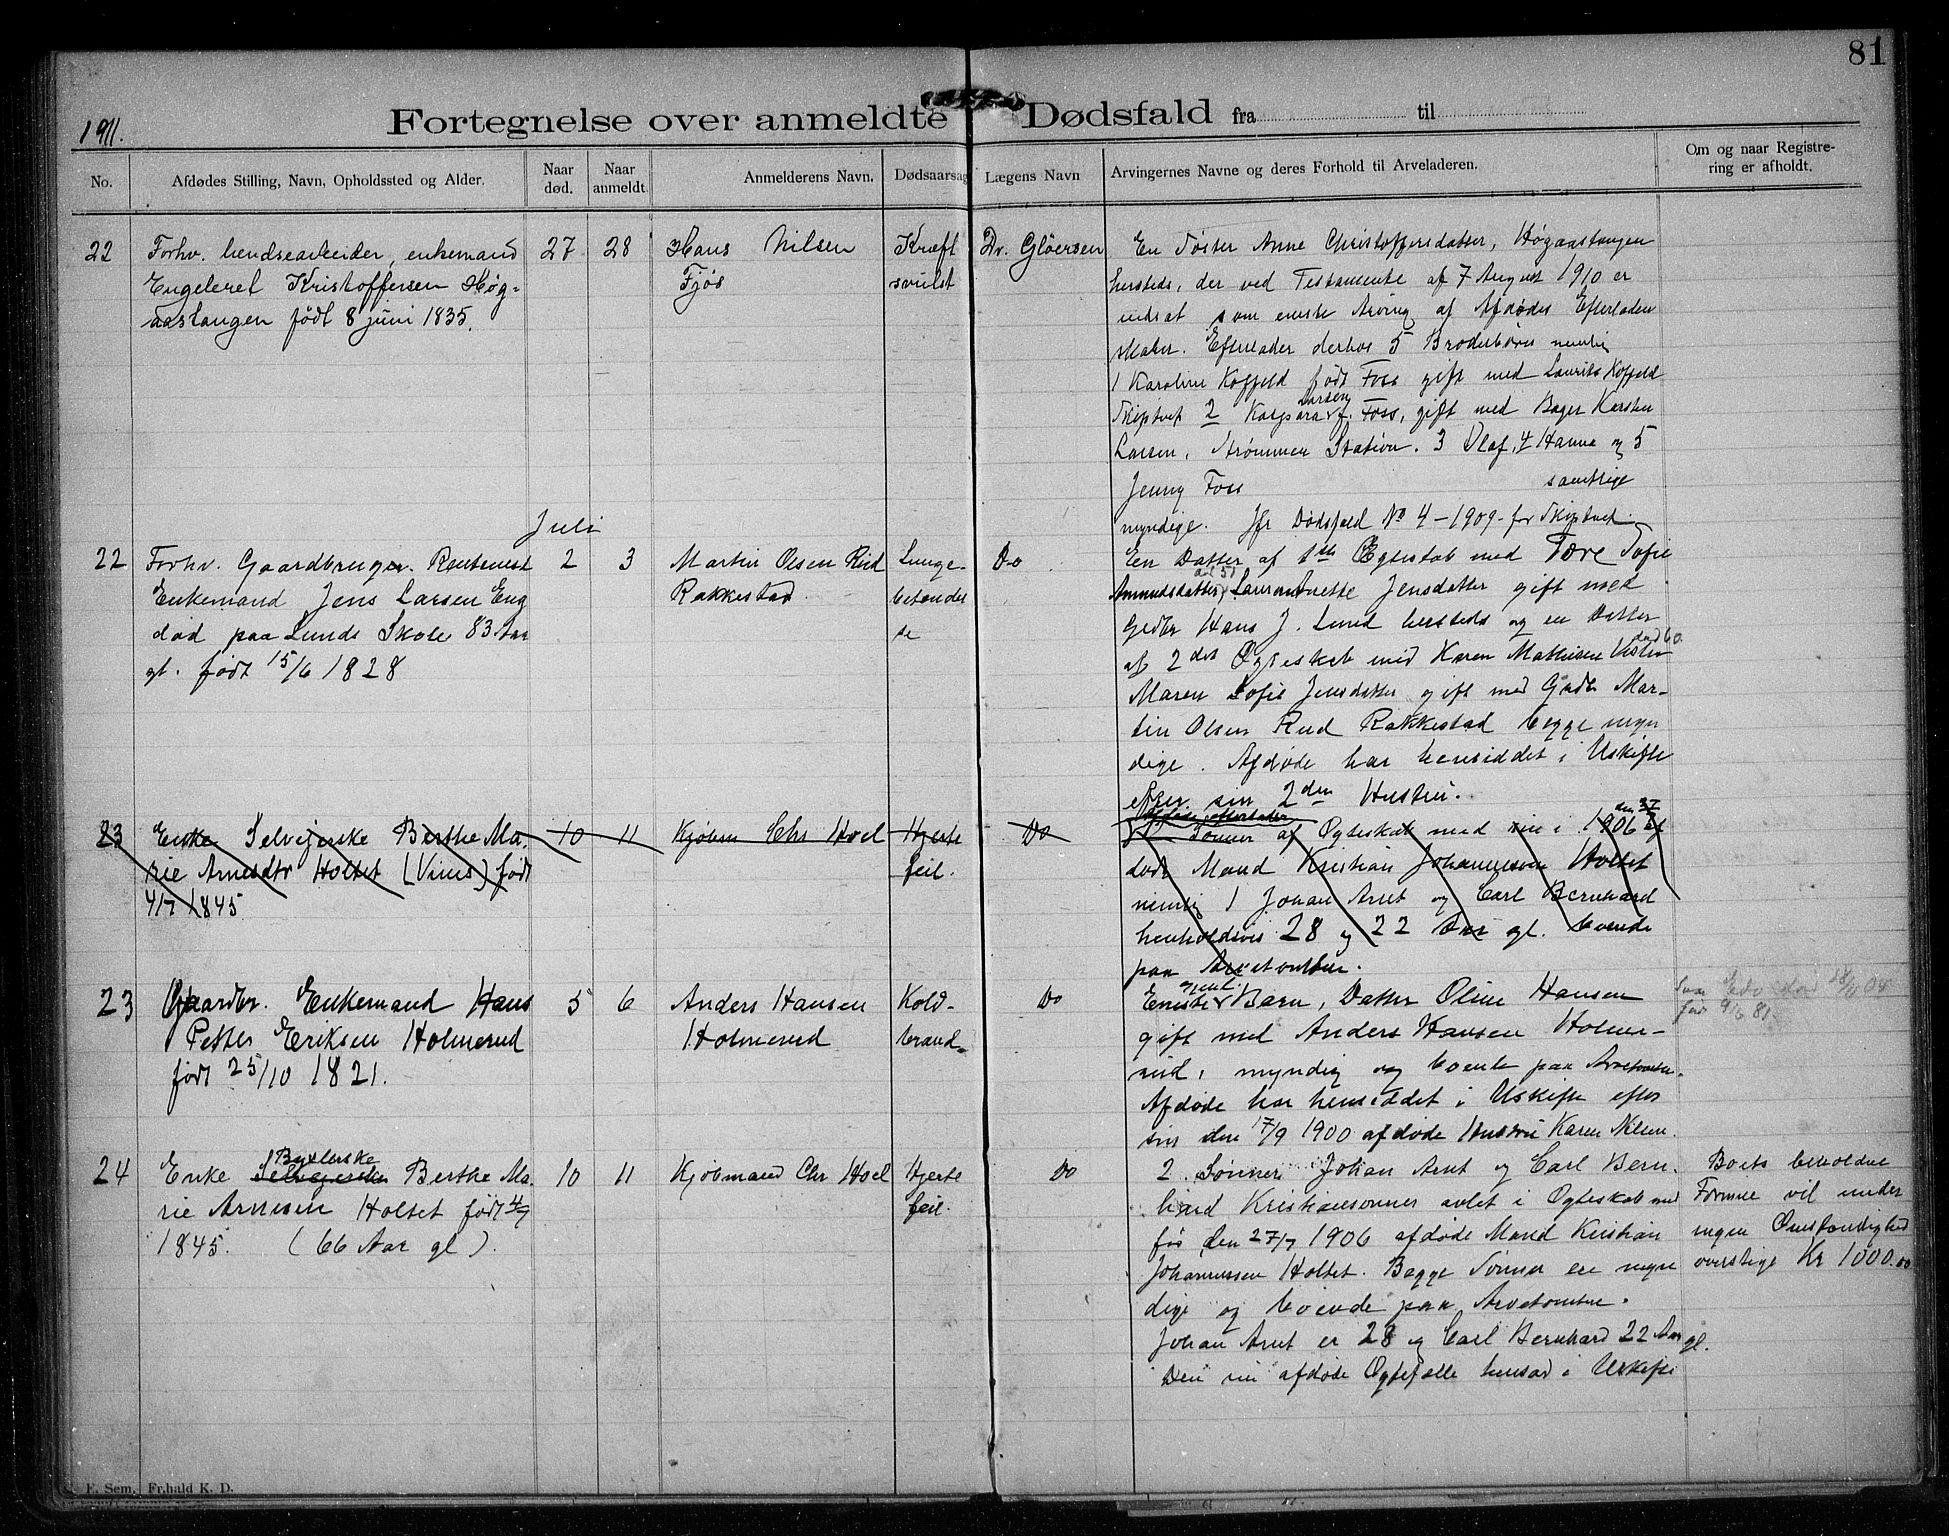 81
1911.
Fortegnelse over anmeldte Dødsfald fra til
No.
Afdødes Stilling, Navn, Opholdssted og Alder.
Naar død.
Naar anmeldt.
Anmelderens Navn.
Dødsaarsag
Lægens Navn
Arvingernes Navne og deres Forhold til Arveladeren.
Om og naar Registre-
ring er afholdt.
22
Forhv. enkemand
Kristoffersen Høg-
aastangen født 8 juni 1835.
27
28
Hans Nilsen
Fjøs
Kræft
svulst
Dr. Gløersen
En Søster Anne Christoffersdatter, Høgaastangen
hersteds, der ved Testamente af 7 August 1910 er
indsat som eneste Arving af Afdødes Efterladen
skaber. Efterlader derhos 5 Broderbørn nemlig
1 Karoline Koffeld født Foss gift med Laurits Koffeld
Skiptvet 2 Larsen f. Foss, gift med Bager Karsten
Larsen, Strømmen Station. 3 Olaf, 4 Hanna og 5
Jenny Foss samtlige
myndige. Jfr Dødsfald No 4 - 1909 - for Skiptvet.
Juli
22
Forhv. Gaardbruger. Rentenist
Enkemand Jens Larsen Eng
død paa Lunds Skole 83 Aar
gl. født 15/6 1828
2
3
Martin Olsen Rud
Rakkestad
Lunge-
betændel
se
Do
En Datter af 1ste Egteskab med Tore Sofie
Amundsdatter, Jensdatter gift med
Gbr Hans J. Lund hersteds og en Datter
af 2det Ægteskab med Karen Mathisen død 60.
Maren Sofie Jensdatter gift med Gbr Mar-
tin Olsen Rud Rakkestad begge myn
dige. Afdøde har hensiddet i Uskifte
efter sin 2den Hustru.
23
Enke Selveierske Berthe Ma-
rie Arnesdtr Holtet (Viines) født
4/7 1845
10
11
Kjøbm Chr Hoel
Hjerte
feil.
Do
Afdøde efterlader
2 Sønner af Ogteskab med sin i 1906 af
døde Mand Kristian Johannessen Holtet
nemlig 1 Johan Arnt og Carl Bernhard
henholdsvis 28 og 22 Aar gl. boende
paa Arvetomten.
23
Gaardbr. Enkemand Hans
Petter Eriksen Holmerud
født 25/10 1821.
5
6
Anders Hansen
Holmerud
Kold-
brand.
Do
Eneste Barn, Datter Oline Hansen
gift med Anders Hansen Holme-
rud, myndig og boende paa Arvetomten.
Afdøde har hensiddet i Uskifte efter
sin den 17/9 1900 afdøde Hustru Karen Nilsen.
24
Enke Selveierske Bygslerske Berthe Ma-
rie Arnesen Holtet født 4/7
1845. (66 Aar gl).
10
11
Kjøbmand Chr Hoel
Hjerte
feil.
Do
2 Sønner Johan Arnt og Carl Bern-
hard Kristiansønner avlet i Ogteskab med
før den 27/7 1906 afdøde Mand Kristian
Johannessen Holtet. Begge Sønner er myn
dige og boende paa Arvetomten.
Johan Arnt er 28 og Carl Bernhard 22 Aar gl.
Den nu afdøde Ogtefælle hensad i Uskifte
Boets beholdne
Formue vil under
ingen Omstændighed
overstige Kr 1000.00
F. Sem, Fr.hald K. D.